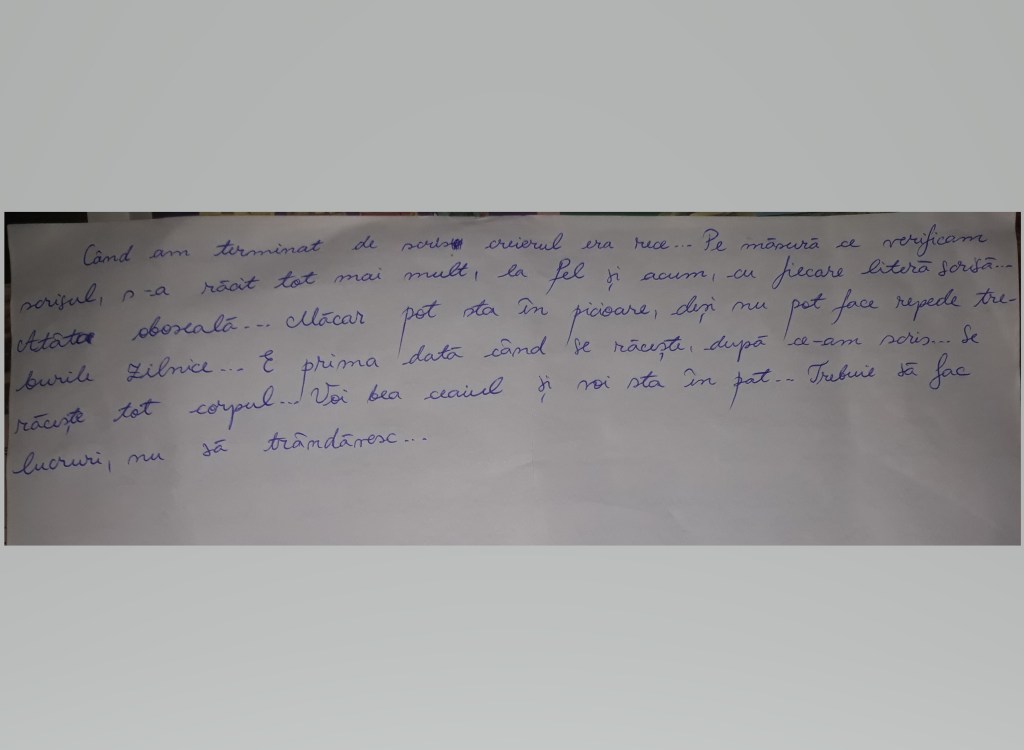 Când am terminat de scris creierul era rece... Pe măsură ce verificam
scrisul, s-a răcit tot mai mult, la fel și acum, cu fiecare literă scrisă...
Atâta oboseală... Măcar pot sta în picioare, deși nu pot face repede tre-
burile zilnice... E prima dată când se răcește, după ce-am scris... Se
răcește tot corpul... Voi bea ceaiul și voi sta în pat... Trebuie să fac
lucruri, nu să trândăvesc...